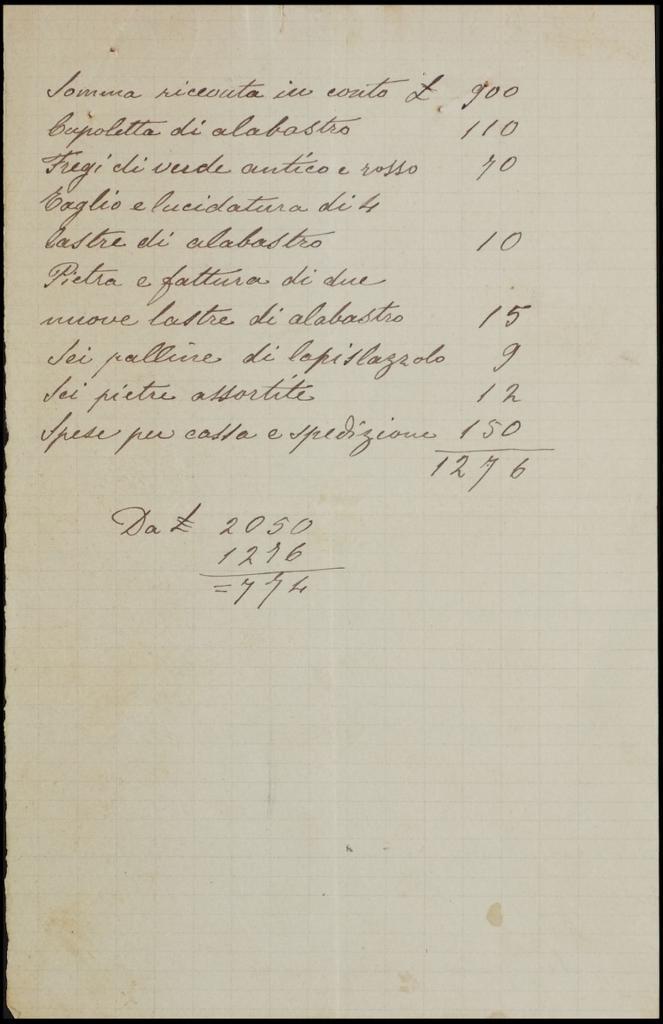 Somma ricevuta in conto £ 900
Cupoletta di alabastro 110
Fregi di verde antico e rosso 70
Taglio e lucidatura di 4
lastre di alabastro 10
Pietra e fattura di due
nuove lastre di alabastro 15
Sei palline di lapislazzolo 9
Sei pietre assortite 12
Spese per cassa e spedizione 150
1276
Da £ 2050
1276
= 774